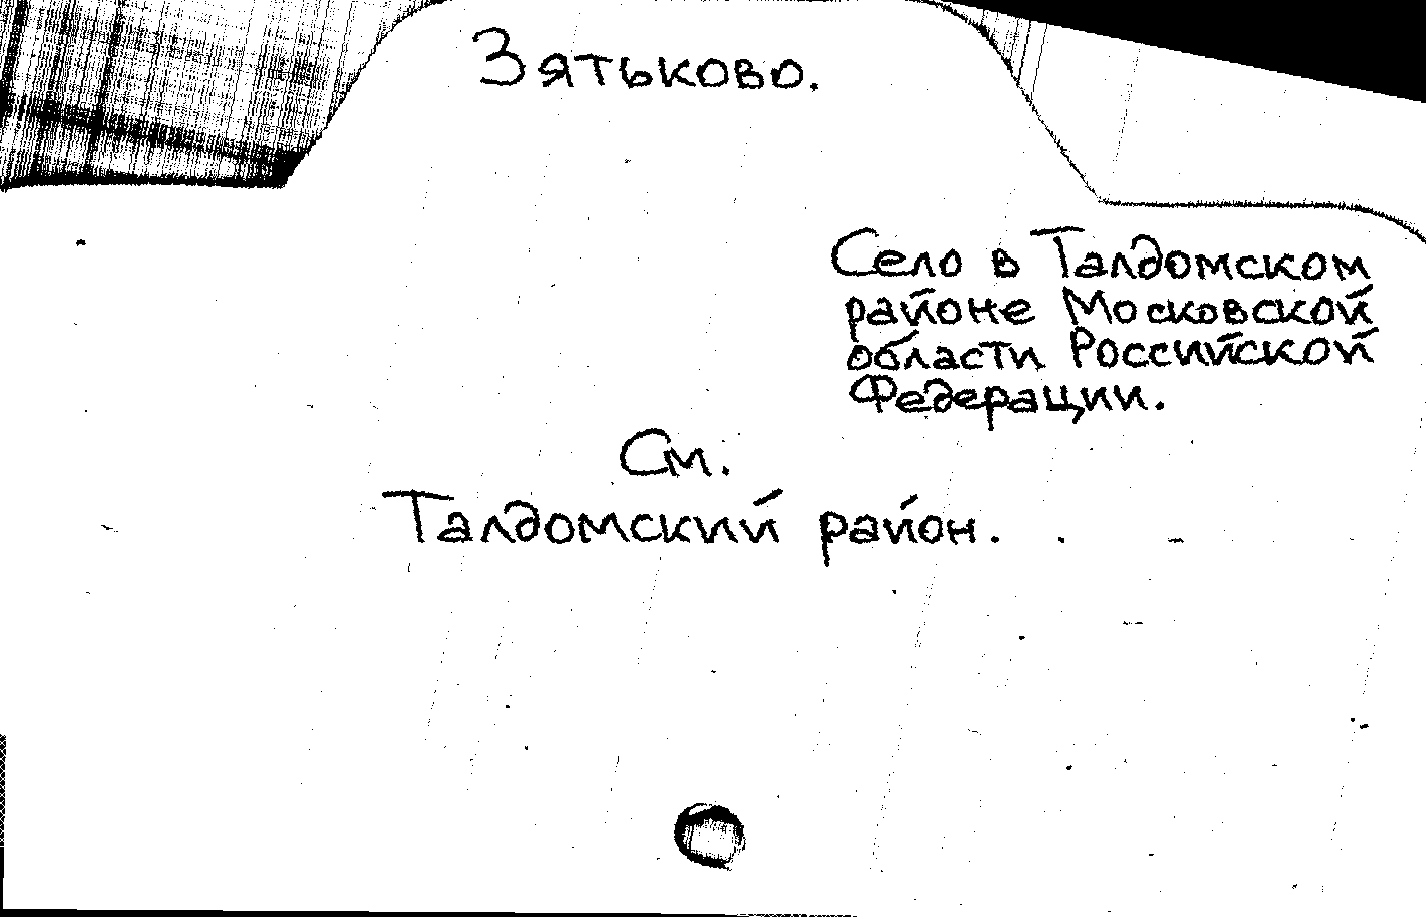 Зятьково.
Село в Талдомском
районе Московской
области Российской
Федерации.
См.
Талдомский район.